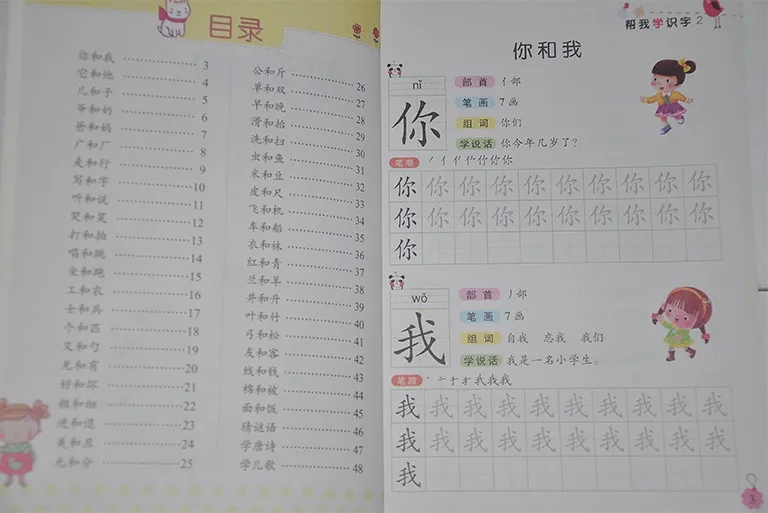 目录
你和我 3
它和他 4
儿和子 5
爷和奶 6
爸和妈 7
广和厂 8
走和行 9
写和字 10
听和说 11
哭和笑 12
打和拍 13
唱和跳 14
坐和跑 15
工和农 16
士和兵 17
个和匹 18
叉和勺 19
无和有 20
好和坏 21
粗和细 22
进和退 23
美和丑 24
元和分 25
公和斤 26
单和双 27
早和晚 28
滑和抬 29
洗和扫 30
虫和鱼 31
米和豆 32
皮和尺 33
飞和机 34
车和船 35
衣和袜 36
红和青 37
兰和草 38
井和升 39
叶和竹 40
弓和松 41
友和客 42
线和钱 43
棉和被 44
面和饭 45
猜谜语 46
学唐诗 47
学儿歌 48
帮我学识字 2
你和我
nǐ
你
部首 亻部
笔画 7画
组词 你们
学说话 你今年几岁了?
笔顺
你 你 你 你 你 你 你 你 你 你
你 你 你 你 你 你 你 你 你 你
你
wǒ
我
部首 丿部
笔画 7画
组词 自我 忘我 我们
学说话 我是一名小学生。
笔顺
我 我 我 我 我 我 我 我 我 我
我 我 我 我 我 我 我 我 我 我
我
3